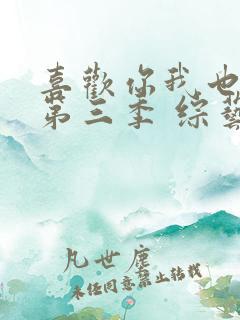 喜歡你我也
第三季 綜藝
凡世塵
未经同意禁止转载